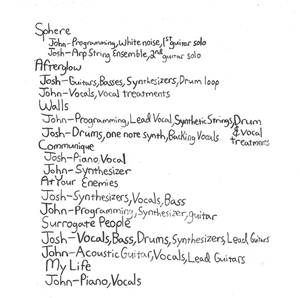 Sphere
John-Programming, White noise, 1st guitar solo
Josh-Arp String Ensemble, 2nd guitar solo
Afterglow
Josh-Guitars, Basses, Synthesizers, Drum loop
John-Vocals, Vocal treatments
Walls
John-Programming, Lead Vocal, Synthetic Strings, Drum & Vocal treatments
Josh-Drums, one note synth, Backing Vocals
Communique
Josh-Piano, Vocal
John-Synthesizer
At Your Enemies
Josh-Synthesizers, Vocals, Bass
John-Programming, Synthesizer, guitar
Surrogate People
Josh-Vocals, Bass, Drums, Synthesizers, Lead Guitars
John-Acoustic Guitar, Vocals, Lead Guitars
My Life
John-Piano, Vocals